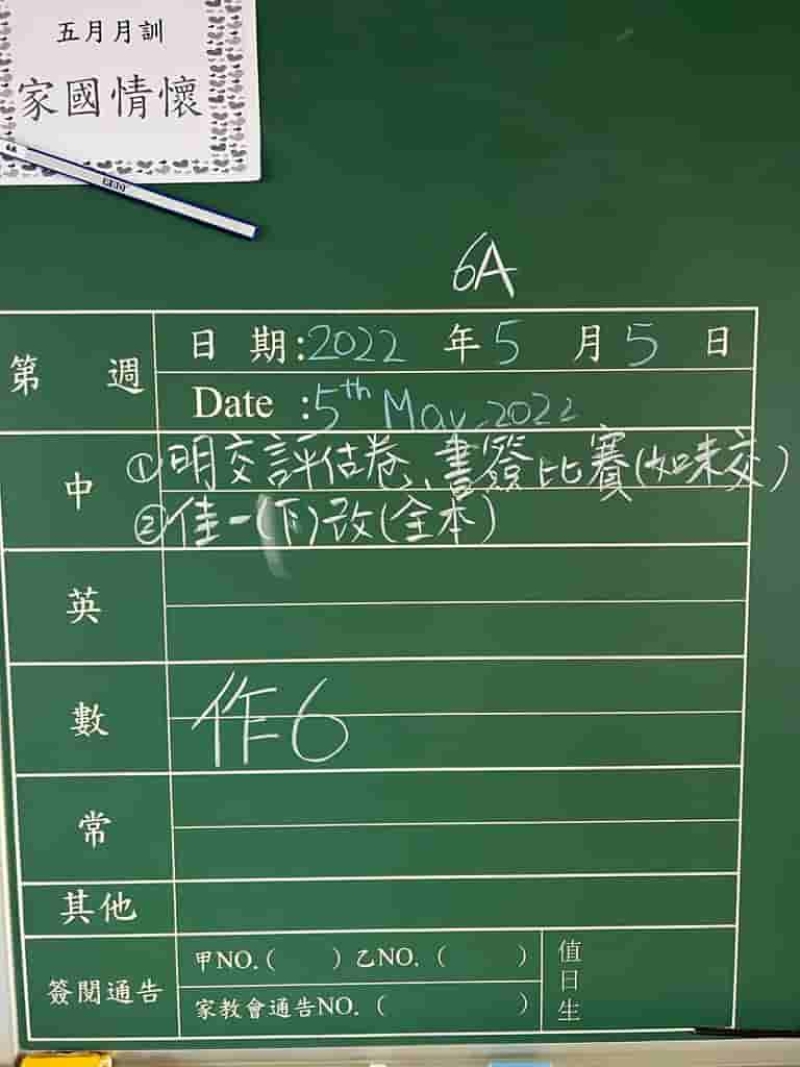 五月月訓
家國情懷
6A
第 週
日 期:2022 年5 月5 日
Date :5th May, 2022
中
①明交評估卷、書簽比賽(如未交)
②佳一(下)改(全本)
英
數
作6
常
其他
簽閱通告
甲NO.( ) 乙NO. ( )
家教會通告NO. ( )
值日生